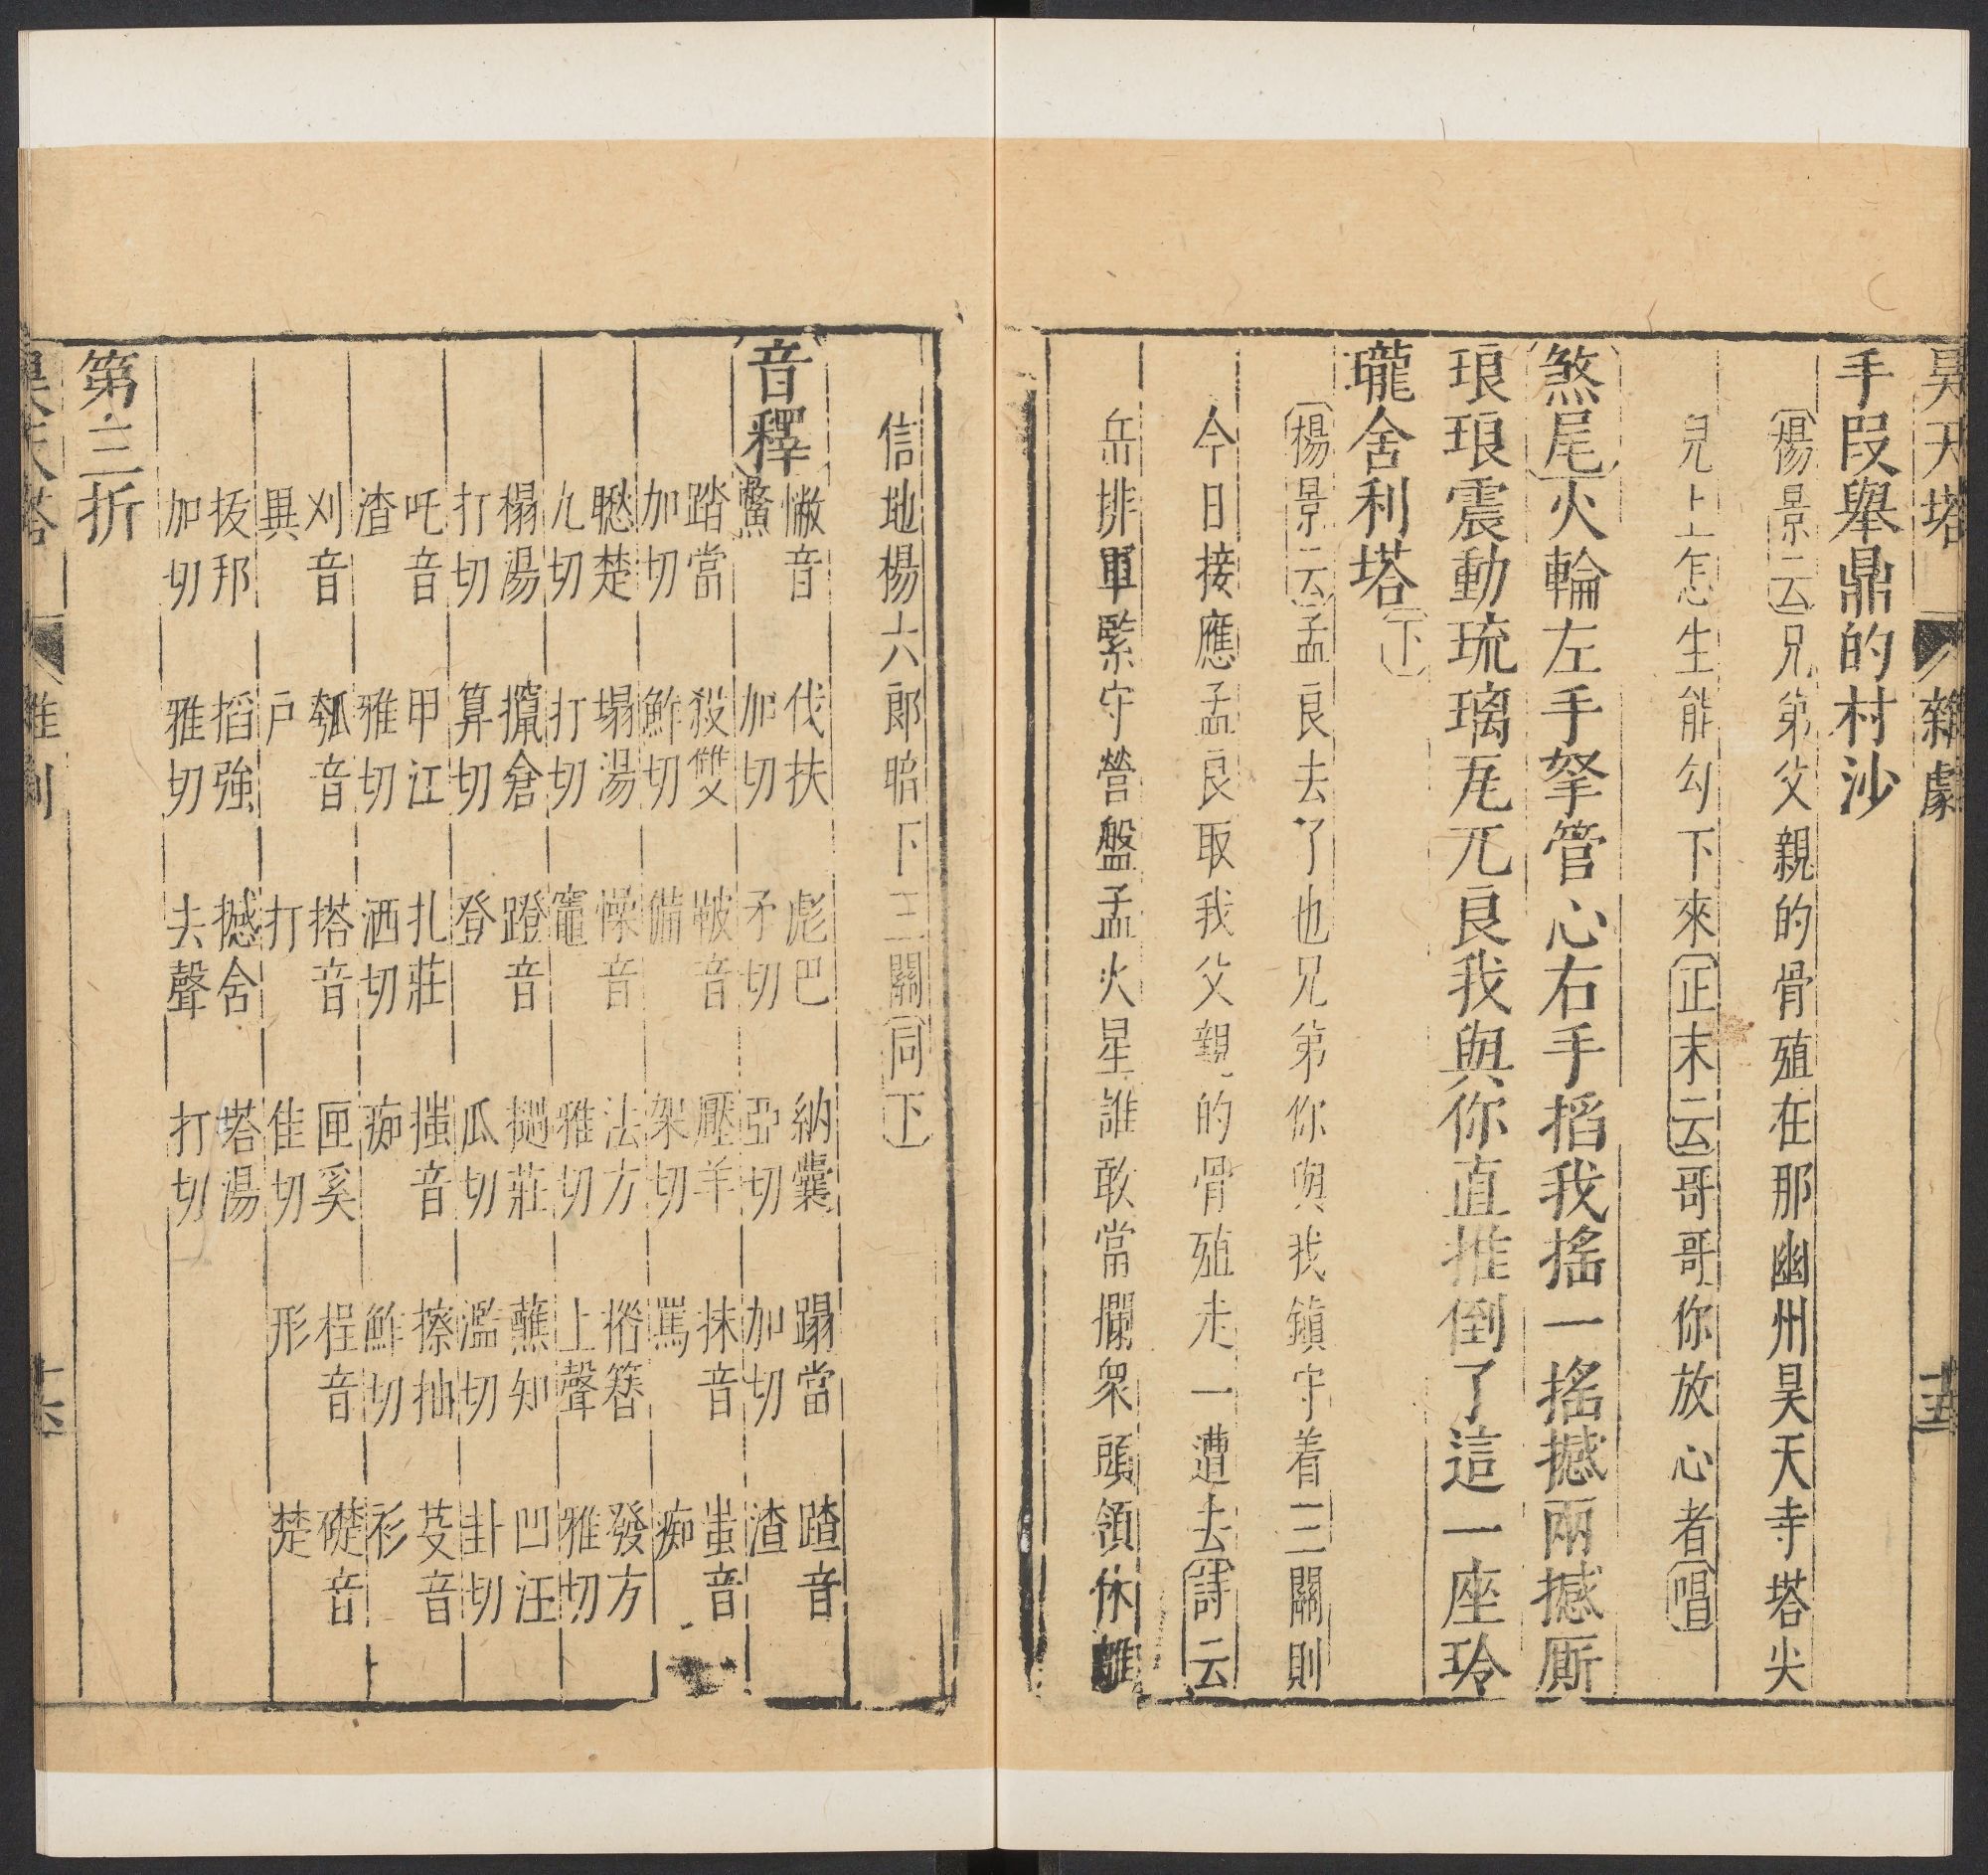 昊天塔 雜劇 十五
手段舉鼎的村沙
楊景云兄弟父親的骨殖在那幽州昊天寺塔尖
兒上怎生能勾下來正末云哥哥你放心者唱
煞尾火輪左手拏管心右手搯我搖一搖撼兩撼厮
琅琅震動琉璃瓦兀良我與你直推倒了這一座玲
瓏舍利塔下
楊景云孟良去了也兄弟你與我鎮守着三關則
今日接應孟良取我父親的骨殖走一遭去詩云
岳排軍緊守營盤孟火星誰敢當攔衆頭領休離
信地楊六郎暗下三關同下
音釋
憋音鱉 伐扶加切 彪巴矛切 納囊亞切 蹋當加切 蹅音渣
踏當加切 殺雙鮓切 鞁音備 壓羊架切 抹音罵 蚩音痴
瞅楚九切 塌湯打切 懆音竈 法方雅切 揝簪上聲 發方雅切
榻湯打切 攛倉算切 蹬音登 撾莊瓜切 蘸知濫切 凹汪卦切
吒音渣 甲江雅切 扎莊洒切 媸音痴 擦抽鮓切 芟音衫
刈音異 瓠音戶 搭音打 匣奚佳切 桯音形 礎音楚
拔邦加切 搯強雅切 撼舍去聲 塔湯打切
第三折
昊天塔 雜劇 十六